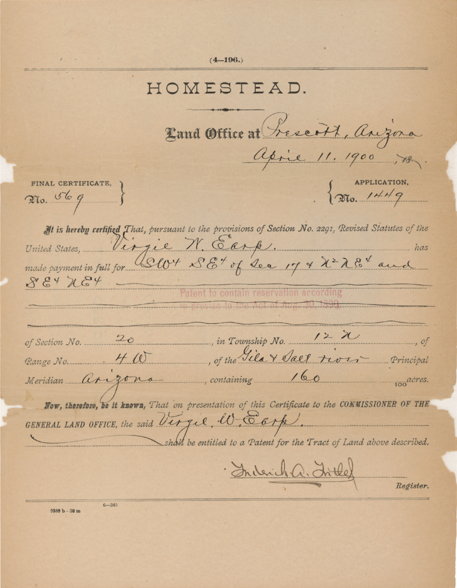 (4—196.)
HOMESTEAD.
Land Office at Prescott, Arizona
April 11, 1900
FINAL CERTIFICATE,
No. 569
APPLICATION,
No. 1449
It is hereby certified That, pursuant to the provisions of Section No. 2291, Revised Statutes of the
United States, Virgie W. Earp. has
made payment in full for SW4 SE4 of Sec 17 & N2 NE4 and
SE4 NE4
Patent to contain reservation according
to proviso to the Act of Aug. 30, 1890.
of Section No. 20, in Township No. 12 N, of
Range No. 4 W, of the Gila & Salt river Principal
Meridian Arizona, containing 160 100 acres.
Now, therefore, be it known, That on presentation of this Certificate to the COMMISSIONER OF THE
GENERAL LAND OFFICE, the said Virgil W. Earp.
shall be entitled to a Patent for the Tract of Land above described.
Register.